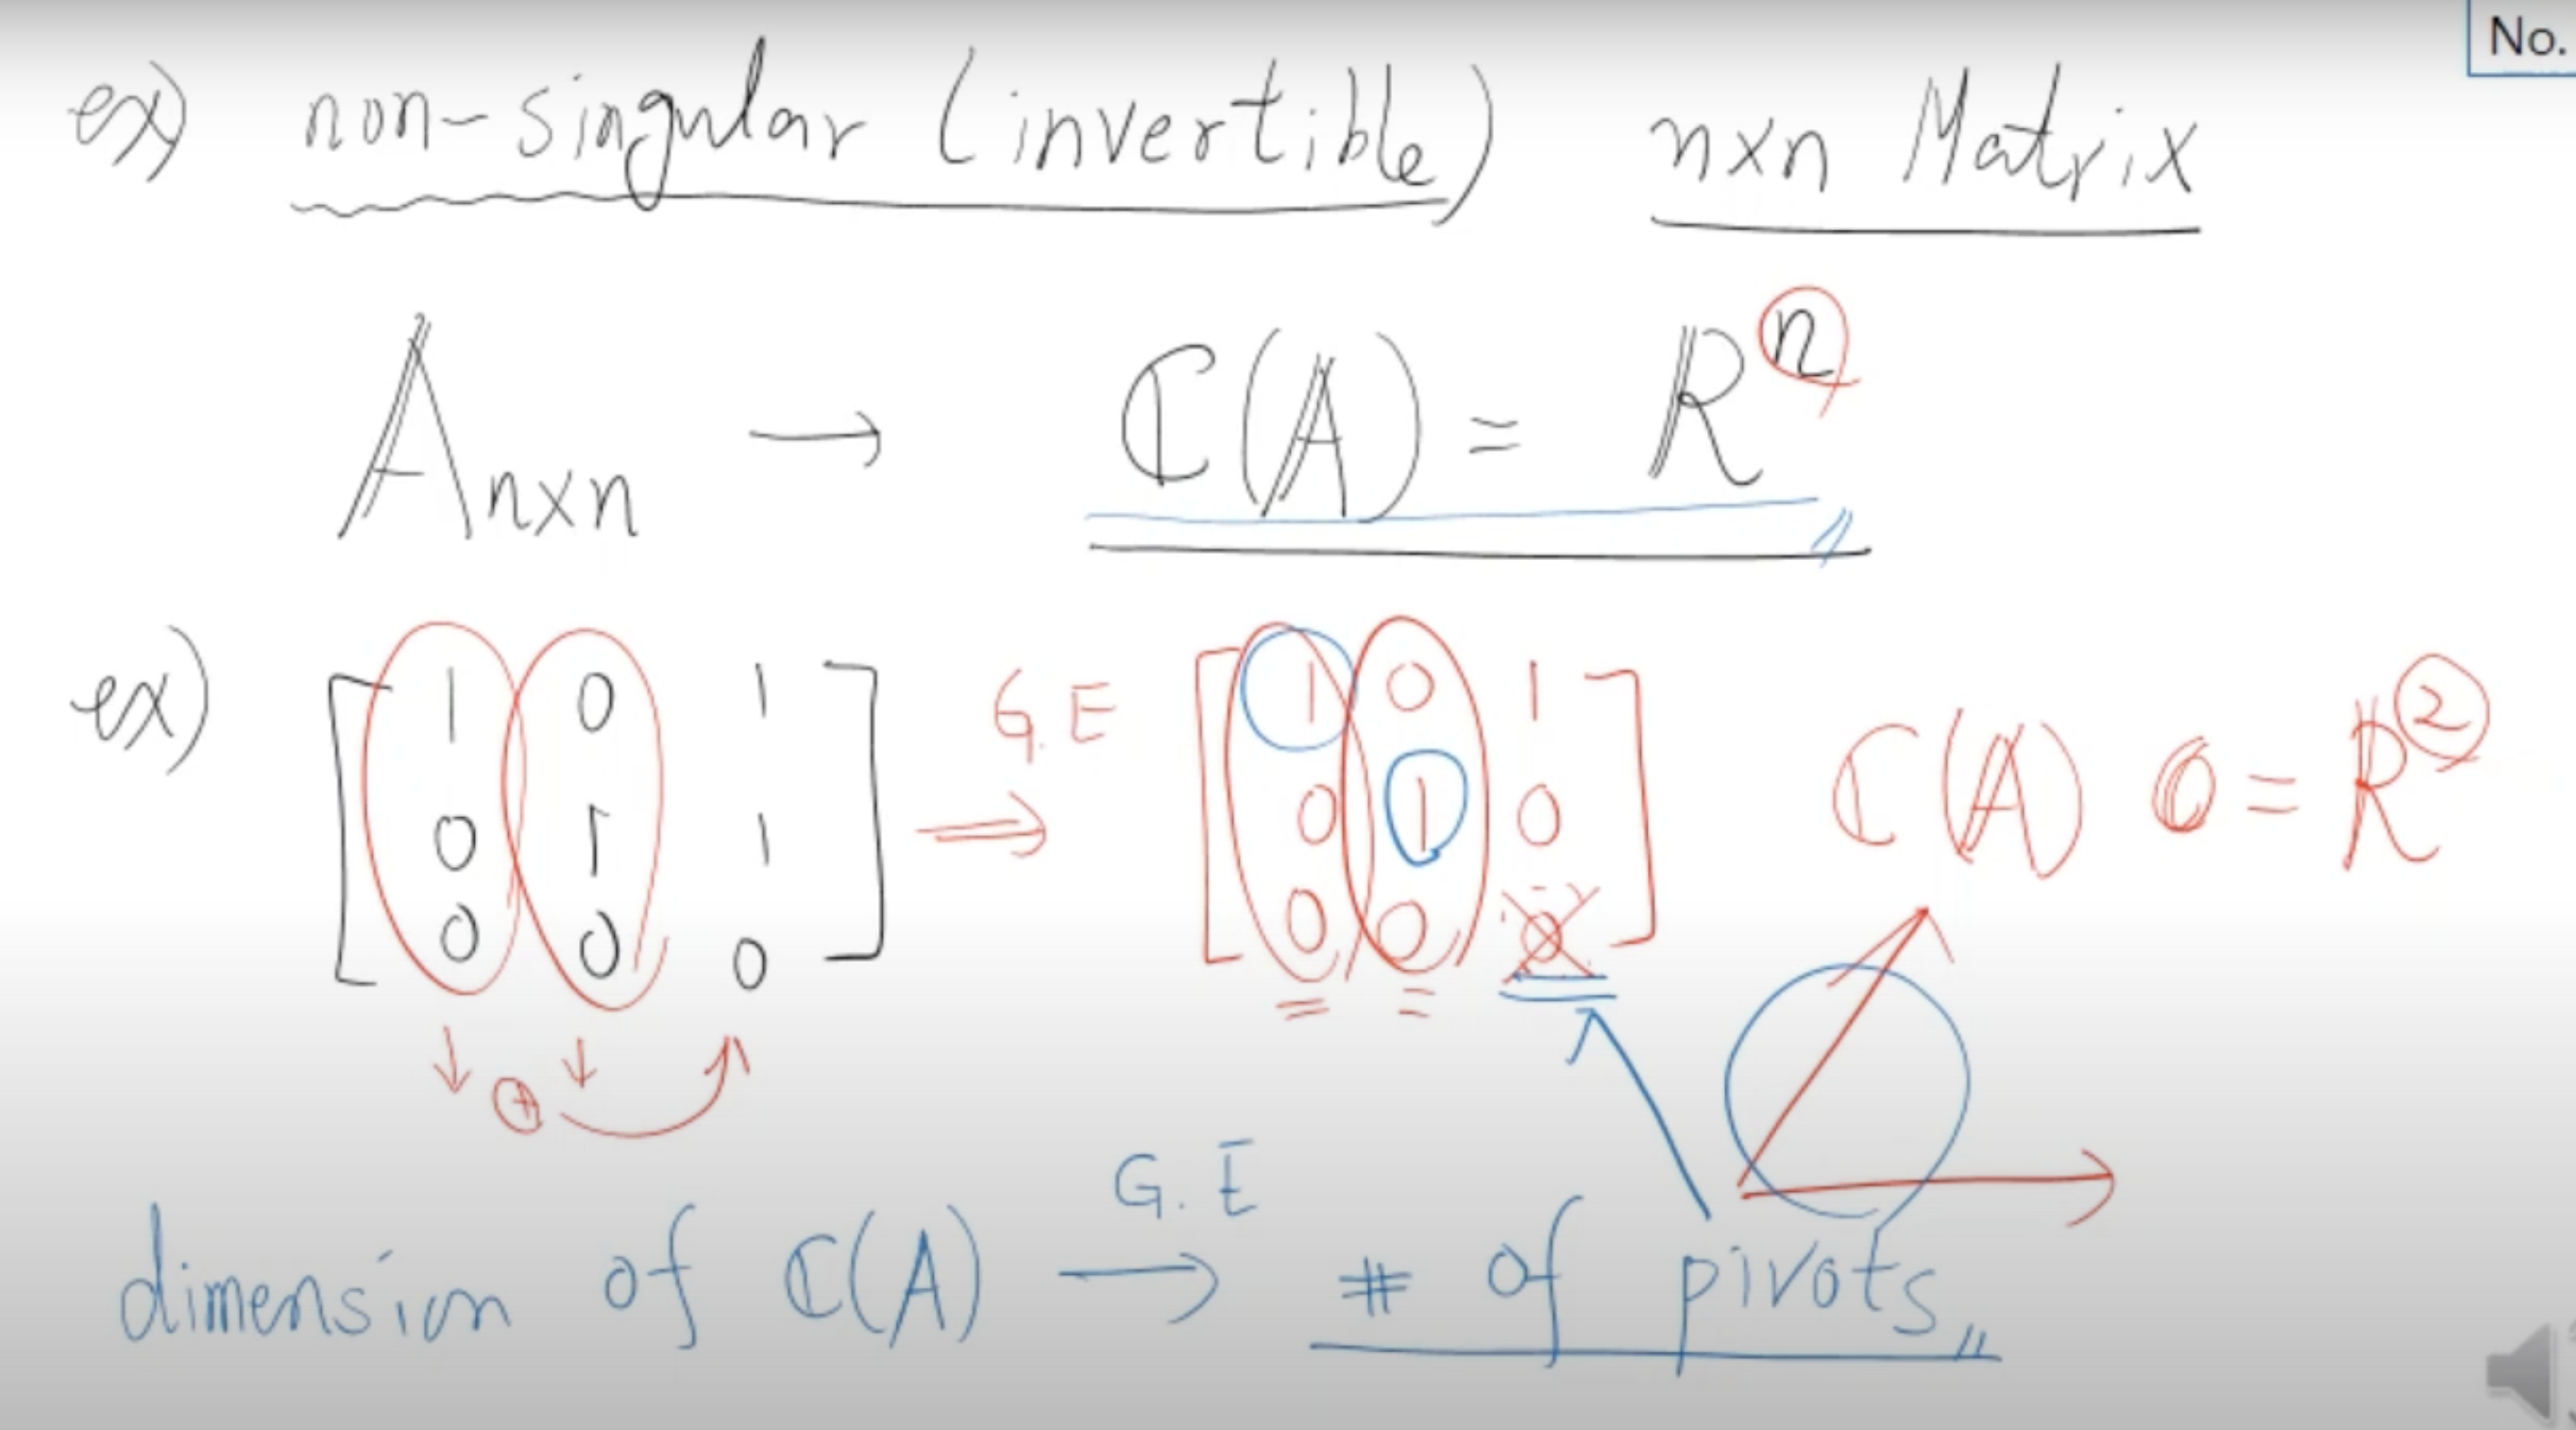 No.
ex) non-singular (invertible) nxn Matrix
A nxn → ℂ(A) = R^n
ex) [1 0 1
0 1 1
0 0 0]
G.E ⇒
[1 0 1
0 1 0
0 0 0]
ℂ(A) = R^2
+
G.E
dimension of ℂ(A) → # of pivots